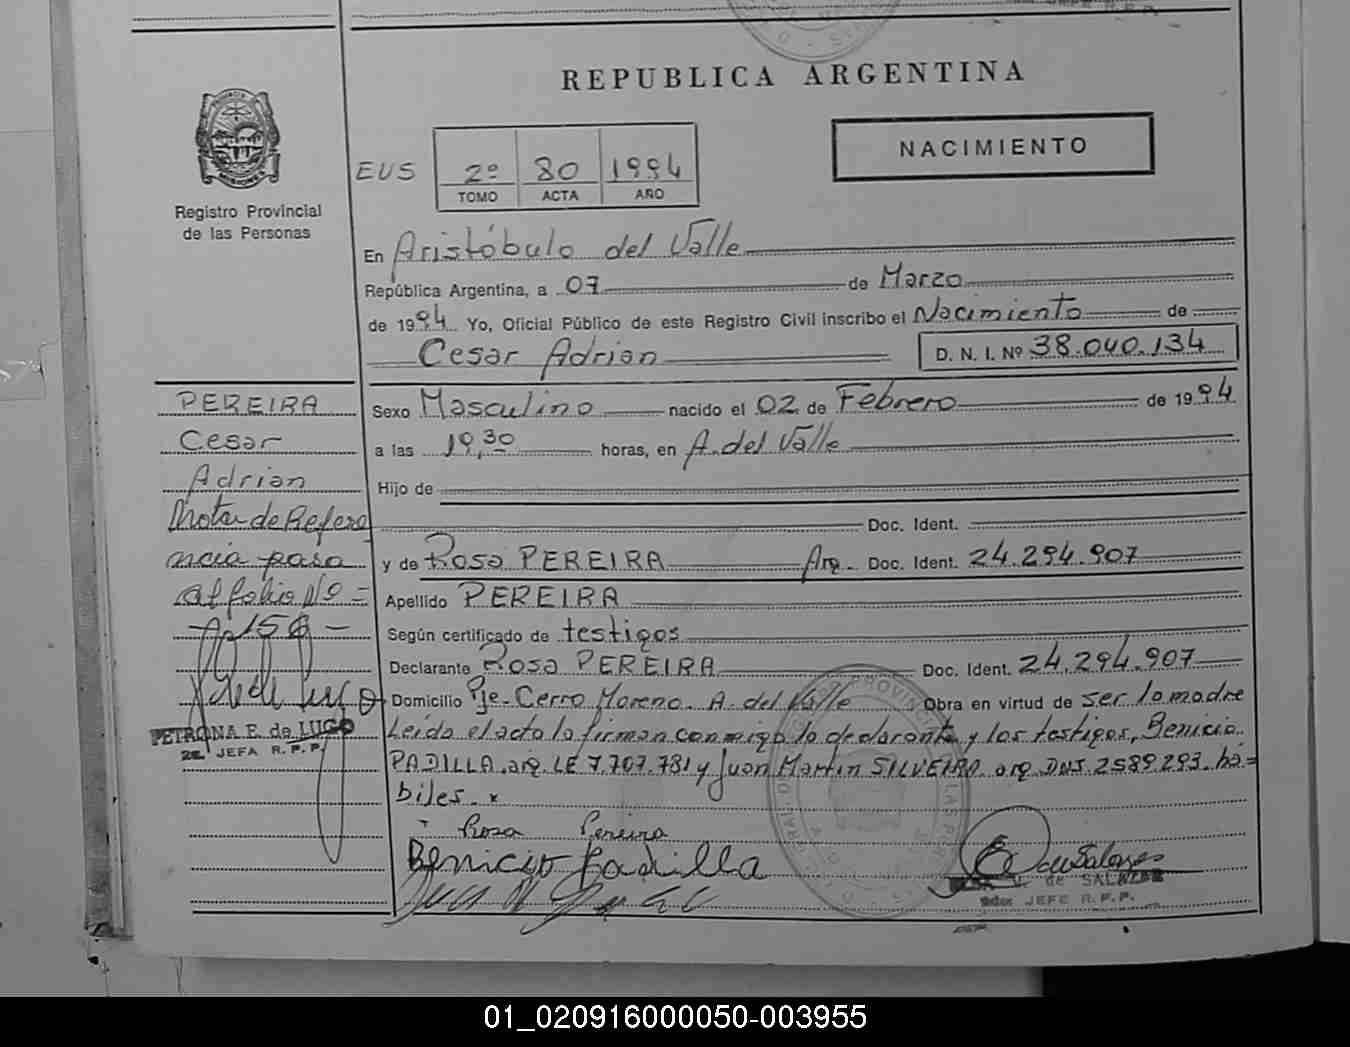 REPUBLICA ARGENTINA
NACIMIENTO
EUS 2º 80 1994
TOMO ACTA AÑO
Registro Provincial
de las Personas
En Aristóbulo del Valle
República Argentina, a 07 de Marzo
de 1994 Yo, Oficial Público de este Registro Civil inscribo el Nacimiento de
Cesar Adrian D. N. I. Nº 38.040.134
PEREIRA
Cesar
Adrian
Nota de Refere
ncia pasa
al folio Nº =
156 -
PETRONA E. de LUGO
JEFA R. P. P.
Sexo Masculino nacido el 02 de Febrero de 1994
a las 19,30 horas, en A. del Valle
Hijo de
Doc. Ident.
y de Rosa PEREIRA Arg. Doc. Ident. 24.294.907
Apellido PEREIRA
Según certificado de testigos
Declarante Rosa PEREIRA Doc. Ident. 24.294.907
Domicilio Pje. Cerro Moreno. A. del Valle Obra en virtud de ser la madre
Leída el acta la firman conmigo la declarante y los testigos, Benicio
PADILLA, arg. LE 7.707.781 y Juan Martin SILVEIRA arg. DNI. 2589.293. há=
biles.
Rosa Pereira
Benicio Padilla
de Salazar
de SALAZAR
JEFE R. P. P.
01_020916000050-003955